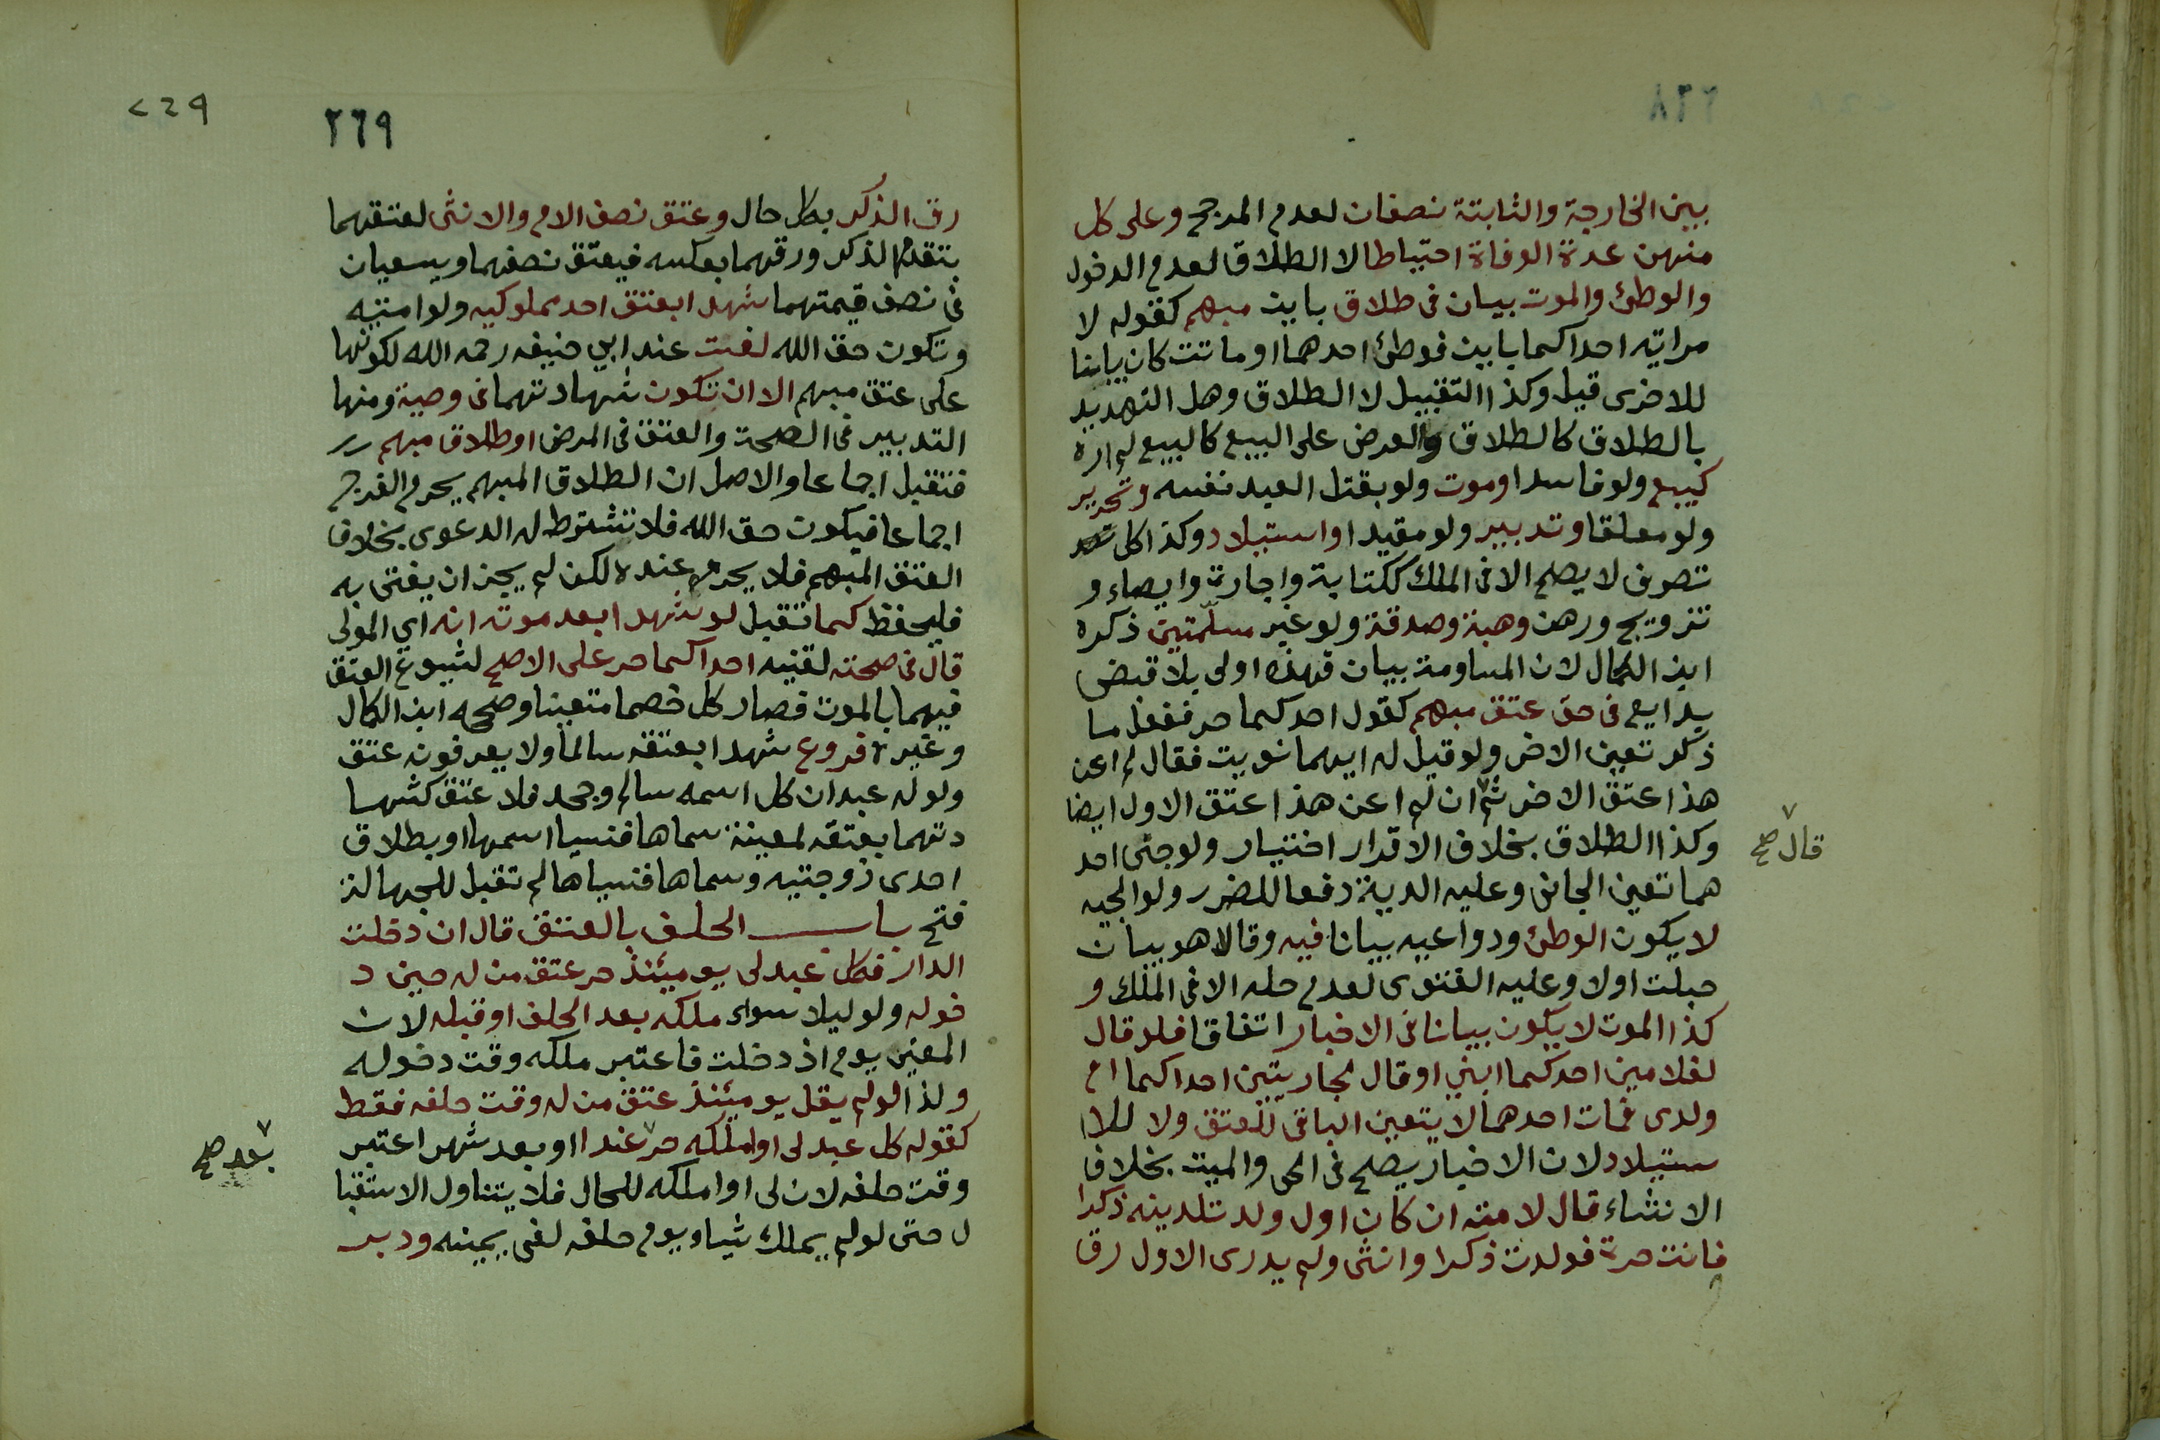 بين الخارجة والثابتة نصفان لعدم المرجح وعلى كل
منهن عدة الوفاة احتياطا لا الطلاق لعدم الدخول
والوطئ والموت بيان فى طلاق باين مبهم كقوله لا
مراتيه احداكما باين فوطئ احدهما او ماتت كان بيانا
للاخرى قيل وكذا التقبيل لا الطلاق وهل التهديد
بالطلاق كالطلاق والعرض على البيع كالبيع لم اره
كبيع ولو فاسدا وموت ولو بقتل العبد نفسه وتحرير
ولو معلقا وتدبير ولو مقيدا واستيلاد وكذا كل
تصرف لا يصلح الا فى الملك ككتابة واجارة وايصاء و
تزويج ورهن وهبة وصدقة ولو غير مسلّمتين ذكره
ابن الكمال لان المساومة بيان فهذه اولى بلا قبض
بدايع فى حق عتق مبهم كقول احدكما حر ففعل ما
ذكر تعين الاخر ولو قيل له ايهما نويت فقال لم اعن
هذا عتق الاخر ثم ان لم اعن هذا عتق الاول ايضا
وكذا الطلاق بخلاف الاقرار اختيار ولو جنى احد
قال صح
هما تعين الجانى وعليه الدية دفعا للضرر ولوالجيه
لا يكون الوطئ ودواعيه بيانا فيه وقالا هو بيان
حبلت اولا وعليه الفتوى لعدم حله الا فى الملك و
كذا الموت لا يكون بيانا فى الاخبار اتفاقا فلو قال
لغلامين احدكما ابني او قال لجاريتين احداكما ام
ولدى فمات احدهما لا يتعين الباقى للعتق ولا للا
ستيلاد لان الاخبار يصلح فى الحى والميت بخلاف
الانشاء قال لامته ان كان اول ولد تلدينه ذكرا
فانت حرة فولدت ذكرا وانثى ولم يدرى الاول رق
٢٦٩
٢٤٩
رق الذكر بكل حال وعتق نصف الام والانثى لعتقهما
بتقدم الذكر ورقهما بعكسه فيعتق نصفهما ويسعيان
فى نصف قيمتهما شهدا بعتق احد مملوكيه ولو امتيه
وتكون حق الله لغت عند ابي حنيفه رحمه الله لكونها
على عتق مبهم الا ان تكون شهادتهما فى وصية ومنها
التدبير فى الصحة والعتق فى المرض او طلاق مبهم
فتقبل اجماعا والاصل ان الطلاق المبهم يحرم الفرج
اجماعا فيكون حق الله فلا تشترط له الدعوى بخلاف
العتق المبهم فلا يحرم عنده لكن لم يجز ان يفتى به
فليحفظ كما تقبل لو شهدا بعد موته انه اي المولى
قال فى صحته لقنيه احداكما حر على الاصح لشيوع العتق
فيهما بالموت فصار كل خصما متعينا وصححه ابن الكمال
وغيره فروع شهدا بعتقه سالما ولا يعرفونه عتق
ولو له عبدان كل اسمه سالم وجحد فلا عتق كشها
دتهما بعتقه لمعينة سماها فنسيا اسمها او بطلاق
احدى زوجتيه وسماها فنسياها لم تقبل للجهالة
فتح باب الحلف بالعتق قال ان دخلت
الدار فكل عبد لى يوميئذ حر عتق من له حين د
خوله ولو ليلا سواء ملكه بعد الحلف او قبله لان
المعنى يوم اذ دخلت فاعتبر ملكه وقت دخوله
ولذا لو لم يقل يوميئذ عتق من له وقت حلفه فقط
كقوله كل عبد لى او املكه حر غدا او بعد شهر اعتبر
بعد صح
وقت حلفه لان لى او املكه للحال فلا يتناول الاستقبا
ل حتى لو لم يملك شيا ويوم حلفه لغى يمينه ودبر